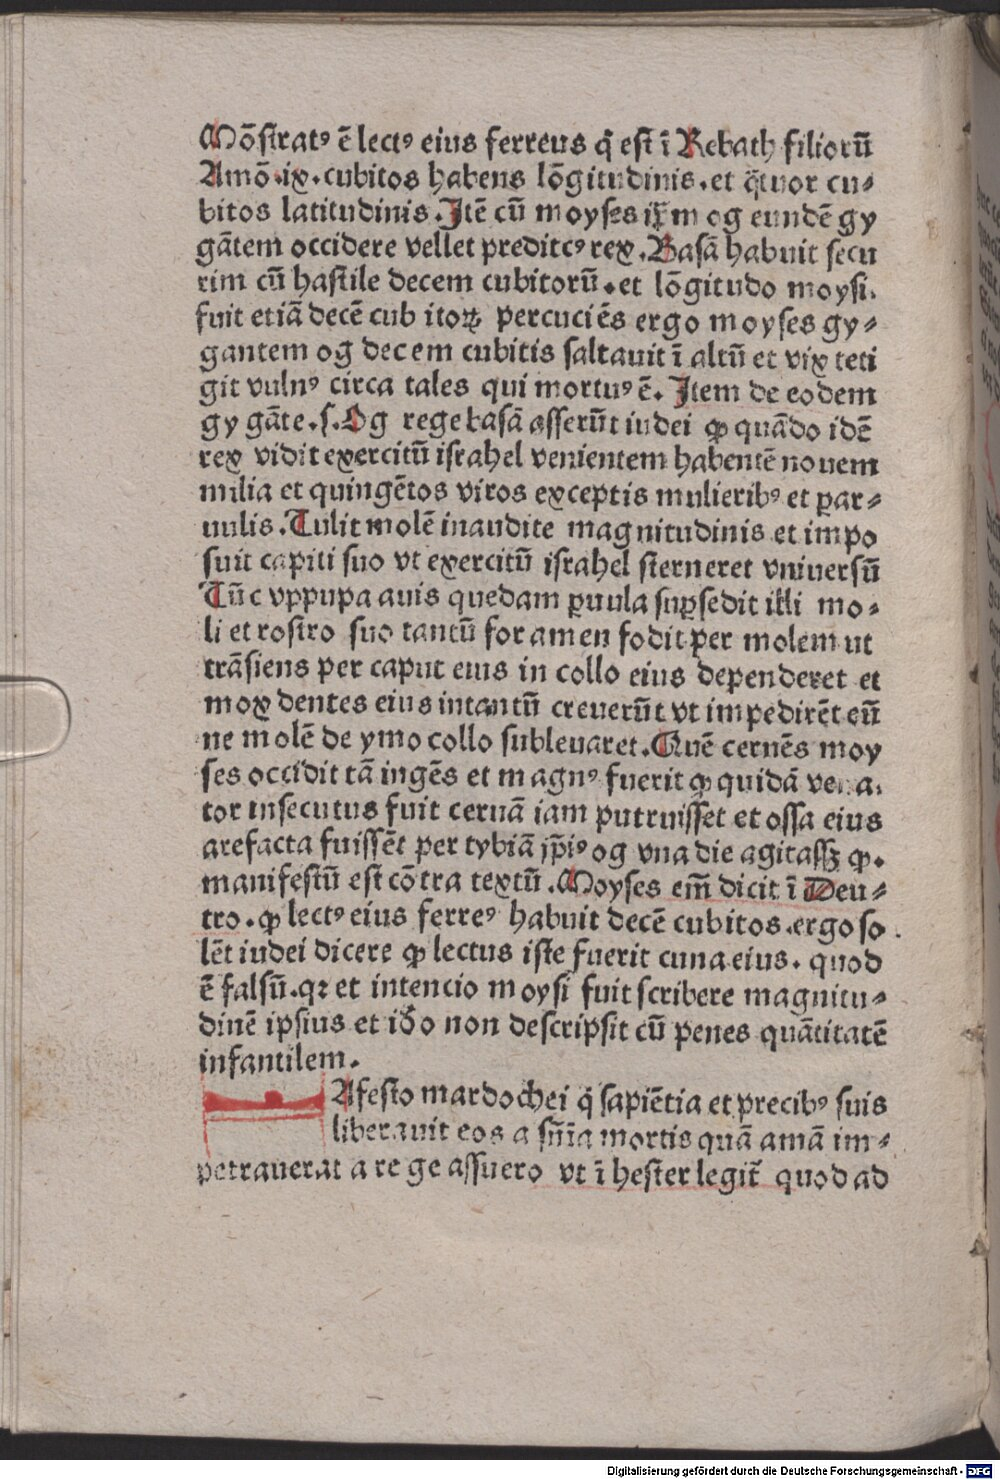 Mōſtratꝰ ē lectꝰ eius ferreus q̄ eſt ī Rebath filiorū
Amō.ix.cubitos habens lōgitudinis.et q̄tuor cu⸗
bitos latitudinis.Itē cū moyſes iꝑ̄m og eundē gy
gātem occidere vellet predictꝰ rex.Baſā habuit ſecu
rim cū haſtile decem cubitorū.et lōgitudo moyſi.
fuit etiā decē cub itoꝝ percuciēs ergo moyſes gy⸗
gantem og decem cubitis ſaltauit ī altū et vix teti
git vulnꝰ circa tales qui mortuꝰ ē. Item de eodem
gy gāte.ſ.Og rege baſā aſſerūt iudei ꝙ quādo idē
rex vidit exercitū iſrahel venientem habentē nouem
milia et quingētos viros exceptis mulieribꝰ et ꝑar⸗
uulis.Tulit molē inaudite magnitudinis et impo
ſuit capiti ſuo vt exercitū iſrahel ſterneret vniuerſū
Tūc vppupa auis quedam ꝑuula ſuꝑſedit illi mo⸗
li et roſtro ſuo tantū foramen fodit per molem ut
trāſiens per caput eius in collo eius dependeret et
mox dentes eius intantū creuerūt vt impedirēt eū
ne molē de ymo collo ſubleuaret.Quē cernēs moy
ſes occidit tā ingēs et magnꝰ fuerit ꝙ quidā vena.
tor inſecutus fuit ceruā iam putruiſſet et oſſa eius
arefacta fuiſſēt per tybiā ip̄iꝰ og vna die agitaſſꝫ ꝙ.
manifeſtū eſt cōtra textū.Moyſes em̄ dicit ī Deu⸗
tro.ꝙ lectꝰ eius ferreꝰ habuit decē cubitos.ergo ſo
lēt iudei dicere ꝙ lectus iſte fuerit cuna eius. quod
ē falſū.qꝛ et intencio moyſi fuit ſcribere magnitu⸗
dinē ipſius et iđo non deſcripſit cū penes quātitatē
infantilem.
Afeſto mardochei q̄ ſapiētia et precibꝰ ſuis
liberauit eos a ſn̄ia mortis quā amā im⸗
petrauerat a re ge aſſuero vt ī heſter legit̄ quod ad
Digitalisierung gefördert durch die Deutsche Forschungsgemeinschaft - DFG